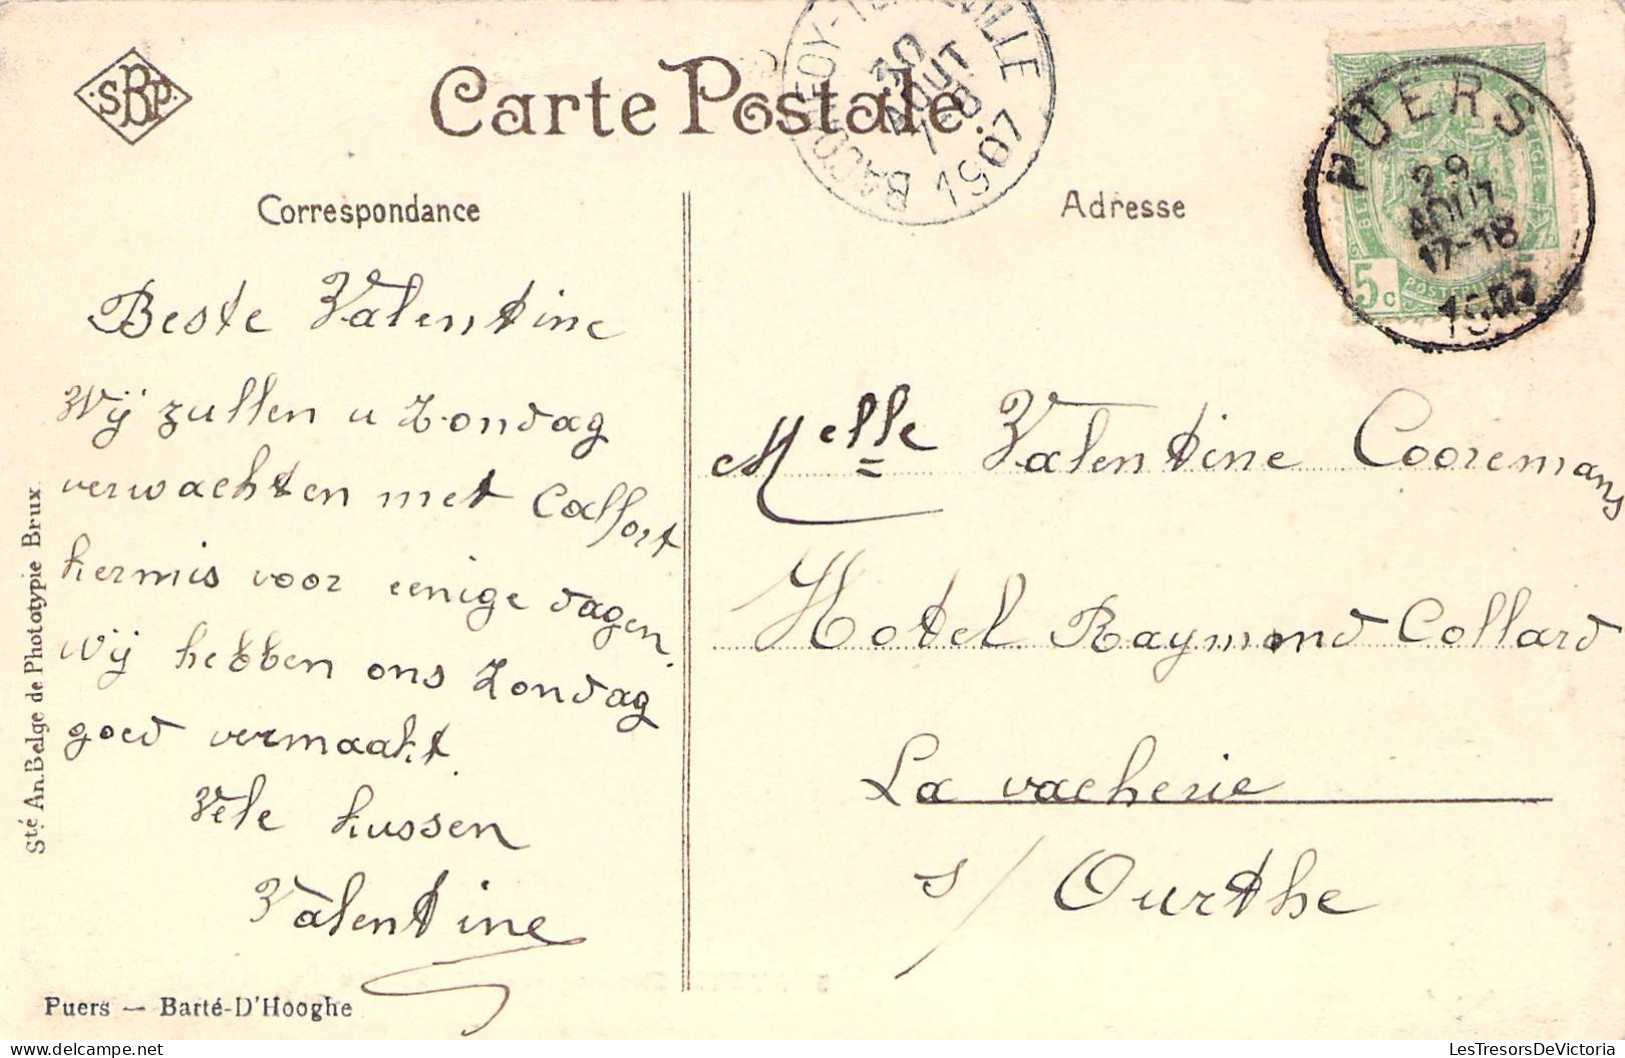 SBP
Carte Postale.
30
AOUT
7-8
1907
PUERS
29
AOUT
17-18
1907
5c
Correspondance
Adresse
Beste Valentine
Wij zullen u Zondag
verwachten met Calfort
kermis voor eenige dagen.
Wij hebben ons Zondag
goed vermaakt.
Vele kussen
Valentine
Melle Valentine Cooremans
Hotel Raymond Collard
La vacherie
s/ Ourthe
Sté An. Belge de Phototypie Brux.
Puers — Barté-D'Hooghe
LesTresorsDeVictoria